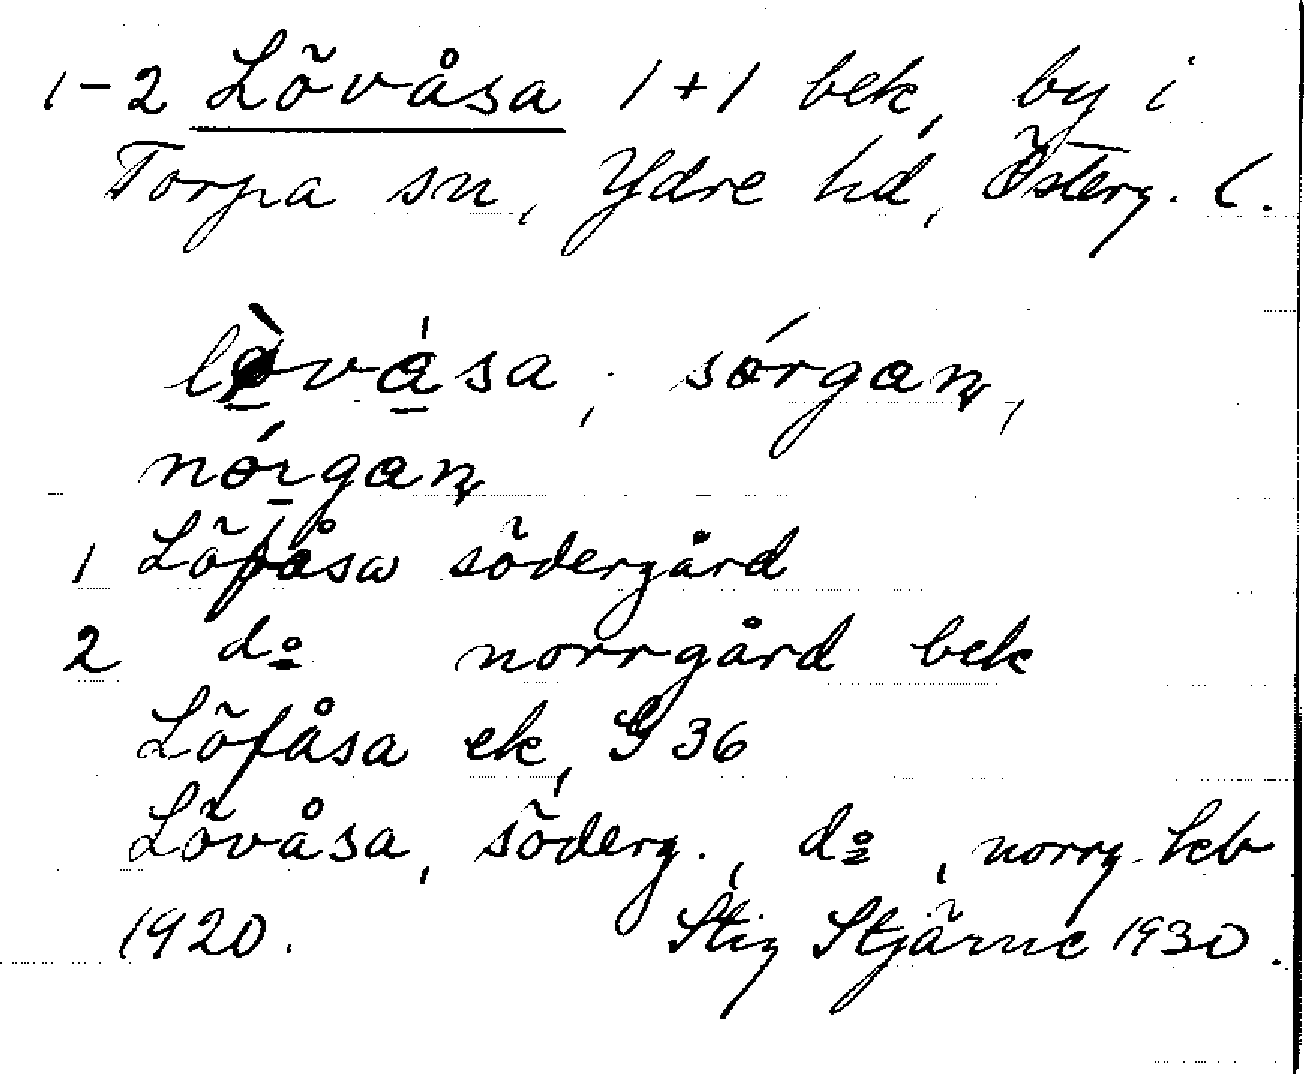 1-2 Lövåsa 1+1 bek, by i
Torpa sn, Ydre hd, Österg. l.
lø̀vása, sórgan,
nórgan
1 Löfåsa södergård
2 do norrgård bek
Löfåsa ek, G 36
Lövåsa, söderg., do, norrg. heb
1920. Stig Stjärne 1930.